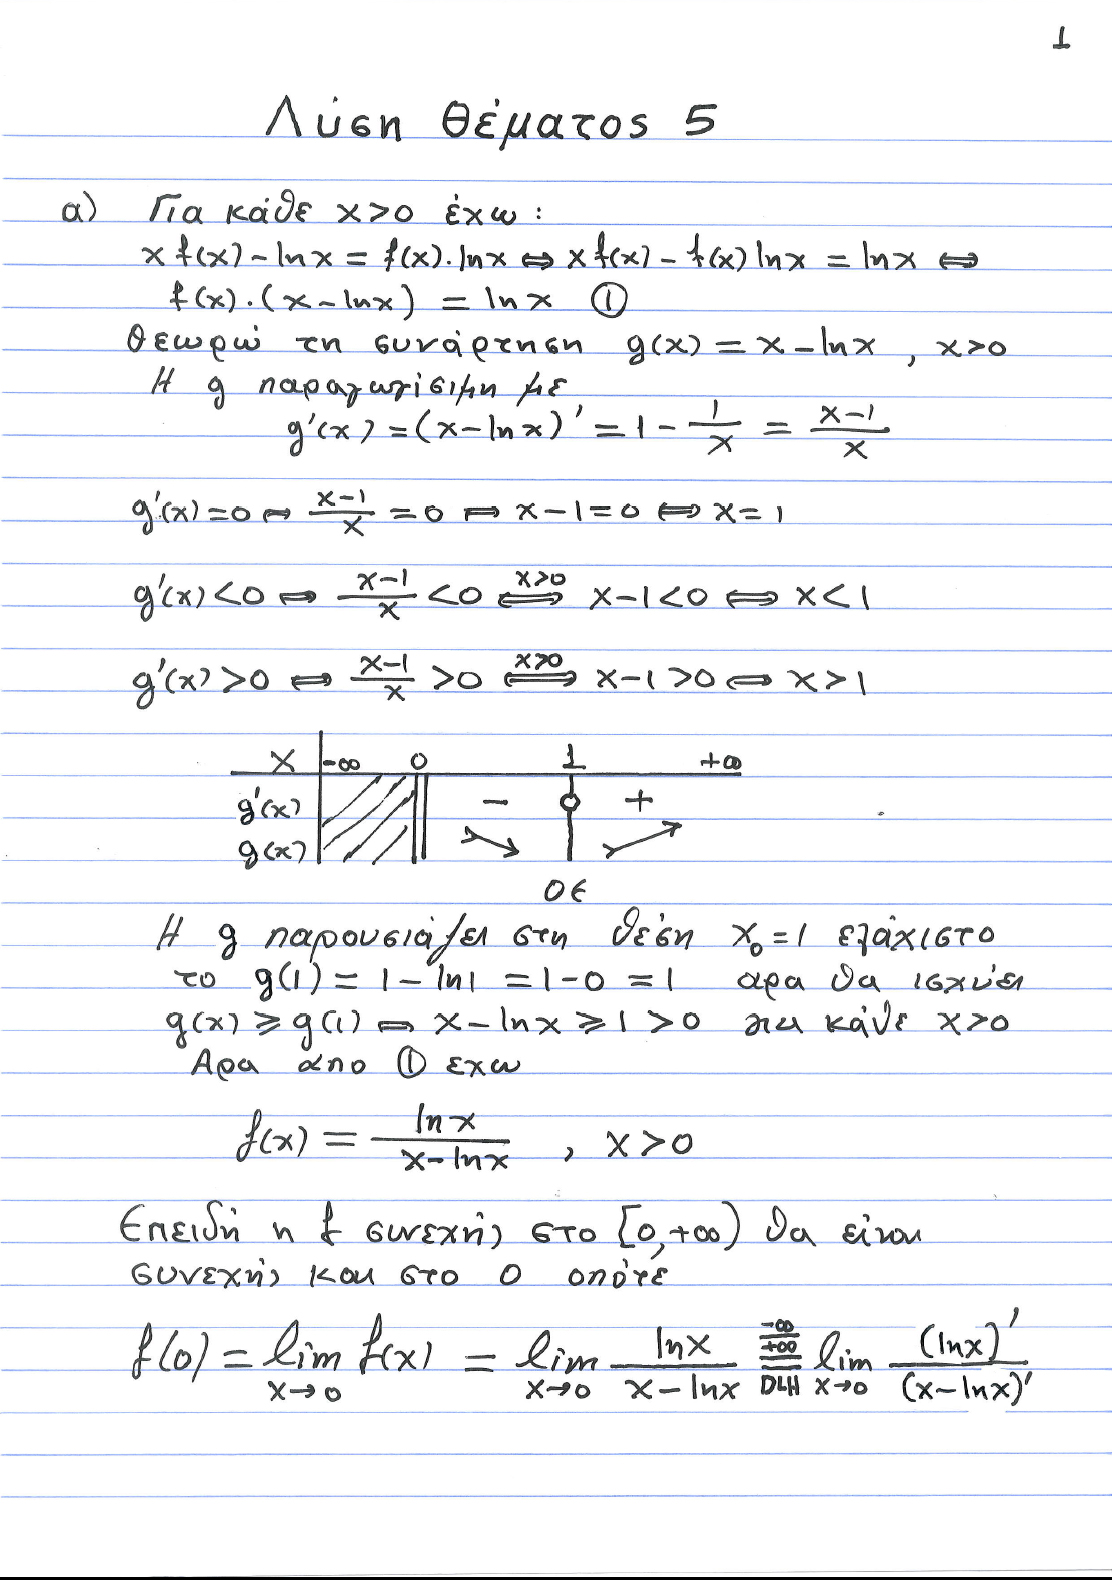 1
Λύση Θέματος 5
α) Για κάθε x>0 έχω :
x f(x) - lnx = f(x).lnx ⇔ x f(x) - f(x) lnx = lnx ⇔
f(x).(x-lnx) = lnx ①
Θεωρώ τη συνάρτηση g(x) = x - lnx , x>0
Η g παραγωγίσιμη με
g'(x) = (x-lnx)' = 1 - 1/x = (x-1)/x
g'(x)=0 ⇔ (x-1)/x = 0 ⇔ x-1=0 ⇔ x=1
g'(x)<0 ⇔ (x-1)/x <0 ⇔ (x>0) x-1<0 ⇔ x<1
g'(x)>0 ⇔ (x-1)/x >0 ⇔ (x>0) x-1>0 ⇔ x>1
x -∞ 0 1 +∞
g'(x) - +
g(x)
ΟΕ
Η g παρουσιάζει στη θέση x₀=1 ελάχιστο
το g(1) = 1-ln1 = 1-0 = 1 αρα θα ισχύει
g(x) ≥ g(1) ⇔ x-lnx ≥ 1 > 0 για κάθε x>0
Αρα απο ① εχω
f(x) = lnx/(x-lnx) , x>0
Επειδή η f συνεχής στο [0,+∞) θα είναι
συνεχής και στο 0 οπότε
f(0) = lim x→0 f(x) = lim x→0 lnx/(x-lnx) = (-∞/+∞ DLH) lim x→0 (lnx)'/(x-lnx)'